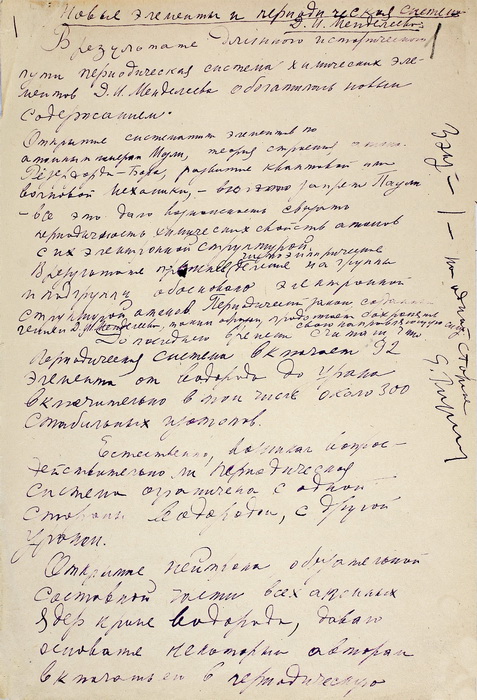 Новые элементы и периодическая система
Д. И. Менделеева.
В результате длинного исторического
пути периодическая система химических эле-
ментов Д. И. Менделеева обогатилась новым
содержанием.
Открытие систематики элементов по
атомным номерам Мозли, теория строения атома
Резерфорда-Бора, развитие квантовой или
волновой механики, запрет Паули
- все это дало возможность связать
периодичность химических свойств атомов
с их электронной структурой.
чисто эмпирическое
В результате прежнее деление на группы
и подгруппы обосновано электронной
структурой атомов. Периодический закон
Д. И. Менделеева, таким образом
До последнего времени считали, что
Периодическая система включает 92
элемента от водорода до урана
включительно в том числе около 300
стабильных изотопов.
Естественно, возникал вопрос-
действительно ли периодическая
система ограничена с одной
стороны водородом, с другой
ураном.
Открытие нейтрона обязательной
составной части всех атомных
ядер кроме водорода, давало
основание некоторым авторам
включать его в периодическую
1 — на одной стороне